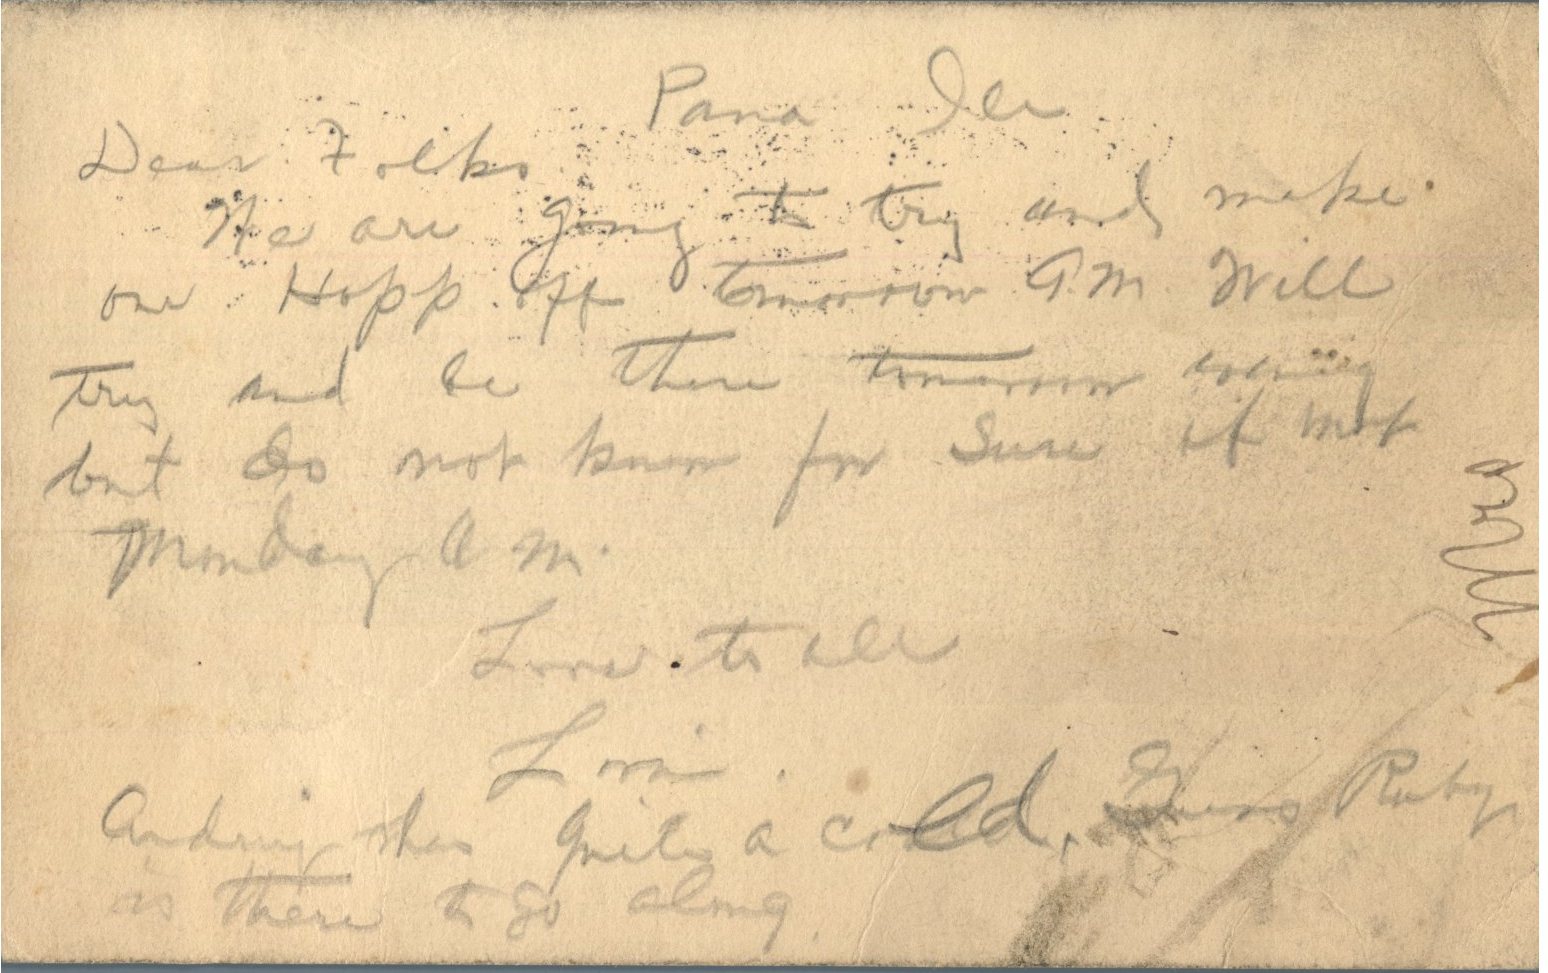 Pana Ill
Dear Folks
We are going to try and make
one Hopp off tomorrow A.M. Will
try and be there tomorrow evening
but do not know for sure if not
Monday A M.
Love to all
has quite a cold, Ruby
is there to go along.